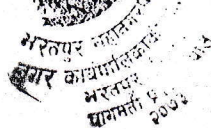 भरतपुर महानगर
नगर कार्यपालिकाको
भरतपुर
बागमती प्र
२०७३